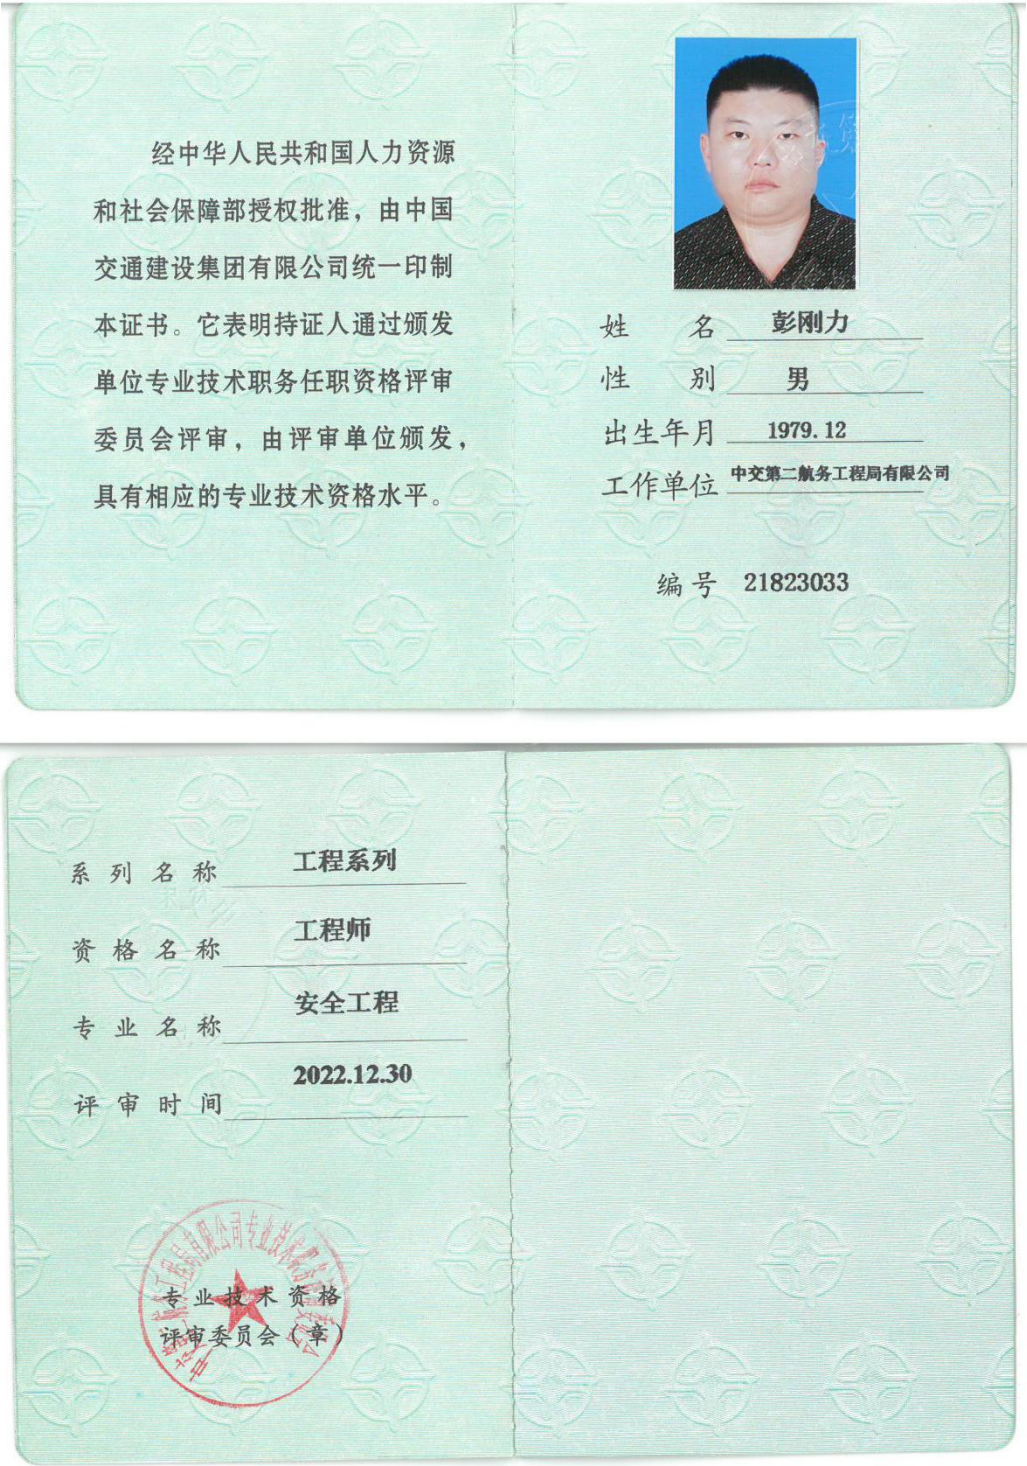 经中华人民共和国人力资源
和社会保障部授权批准，由中国
交通建设集团有限公司统一印制
本证书。它表明持证人通过颁发
单位专业技术职务任职资格评审
委员会评审，由评审单位颁发，
具有相应的专业技术资格水平。
姓 名 彭刚力
性 别 男
出生年月 1979.12
工作单位 中交第二航务工程局有限公司
编号 21823033
系列名称 工程系列
资格名称 工程师
专业名称 安全工程
评审时间 2022.12.30
专业技术资格
评审委员会（章）